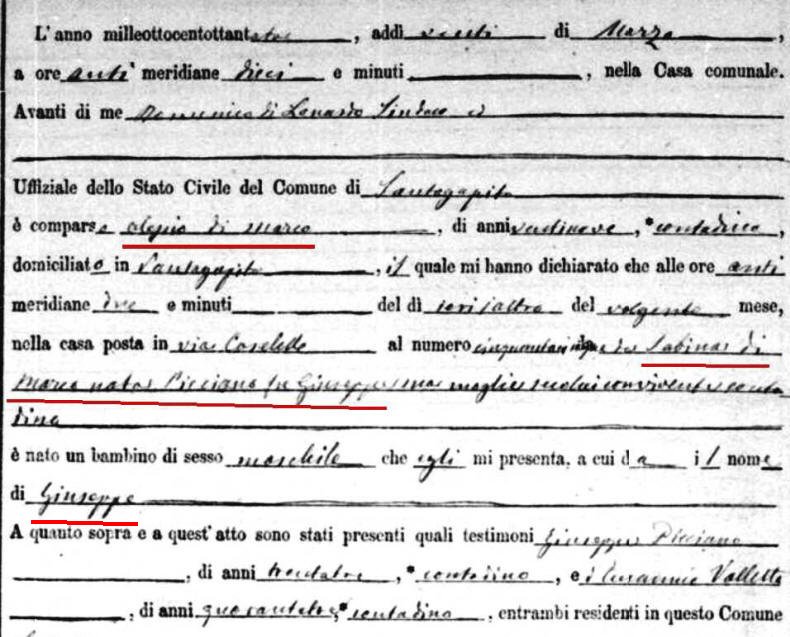 L'anno milleottocentottantatre, addì venti di Marzo,
a ore anti meridiane dieci e minuti, nella Casa comunale.
Avanti di me Domenico di Lonardo Sindaco ed
Uffiziale dello Stato Civile del Comune di Santagapito
è comparso di Marco, di anni ventinove, contadino,
domiciliato in Santagapito, il quale mi hanno dichiarato che alle ore anti
meridiane due e minuti del dì ieri l'altro del volgente mese,
nella casa posta in via al numero da Sabina di
Marco nata Picciano fu Giuseppe sua moglie seco lui convivente conta
dina
è nato un bambino di sesso maschile che egli mi presenta, a cui da il nome
di Giuseppe
A quanto sopra e a quest'atto sono stati presenti quali testimoni Giuseppe Picciano
, di anni trentatre, contadino, e Valletta
, di anni quarantatre, contadino, entrambi residenti in questo Comune